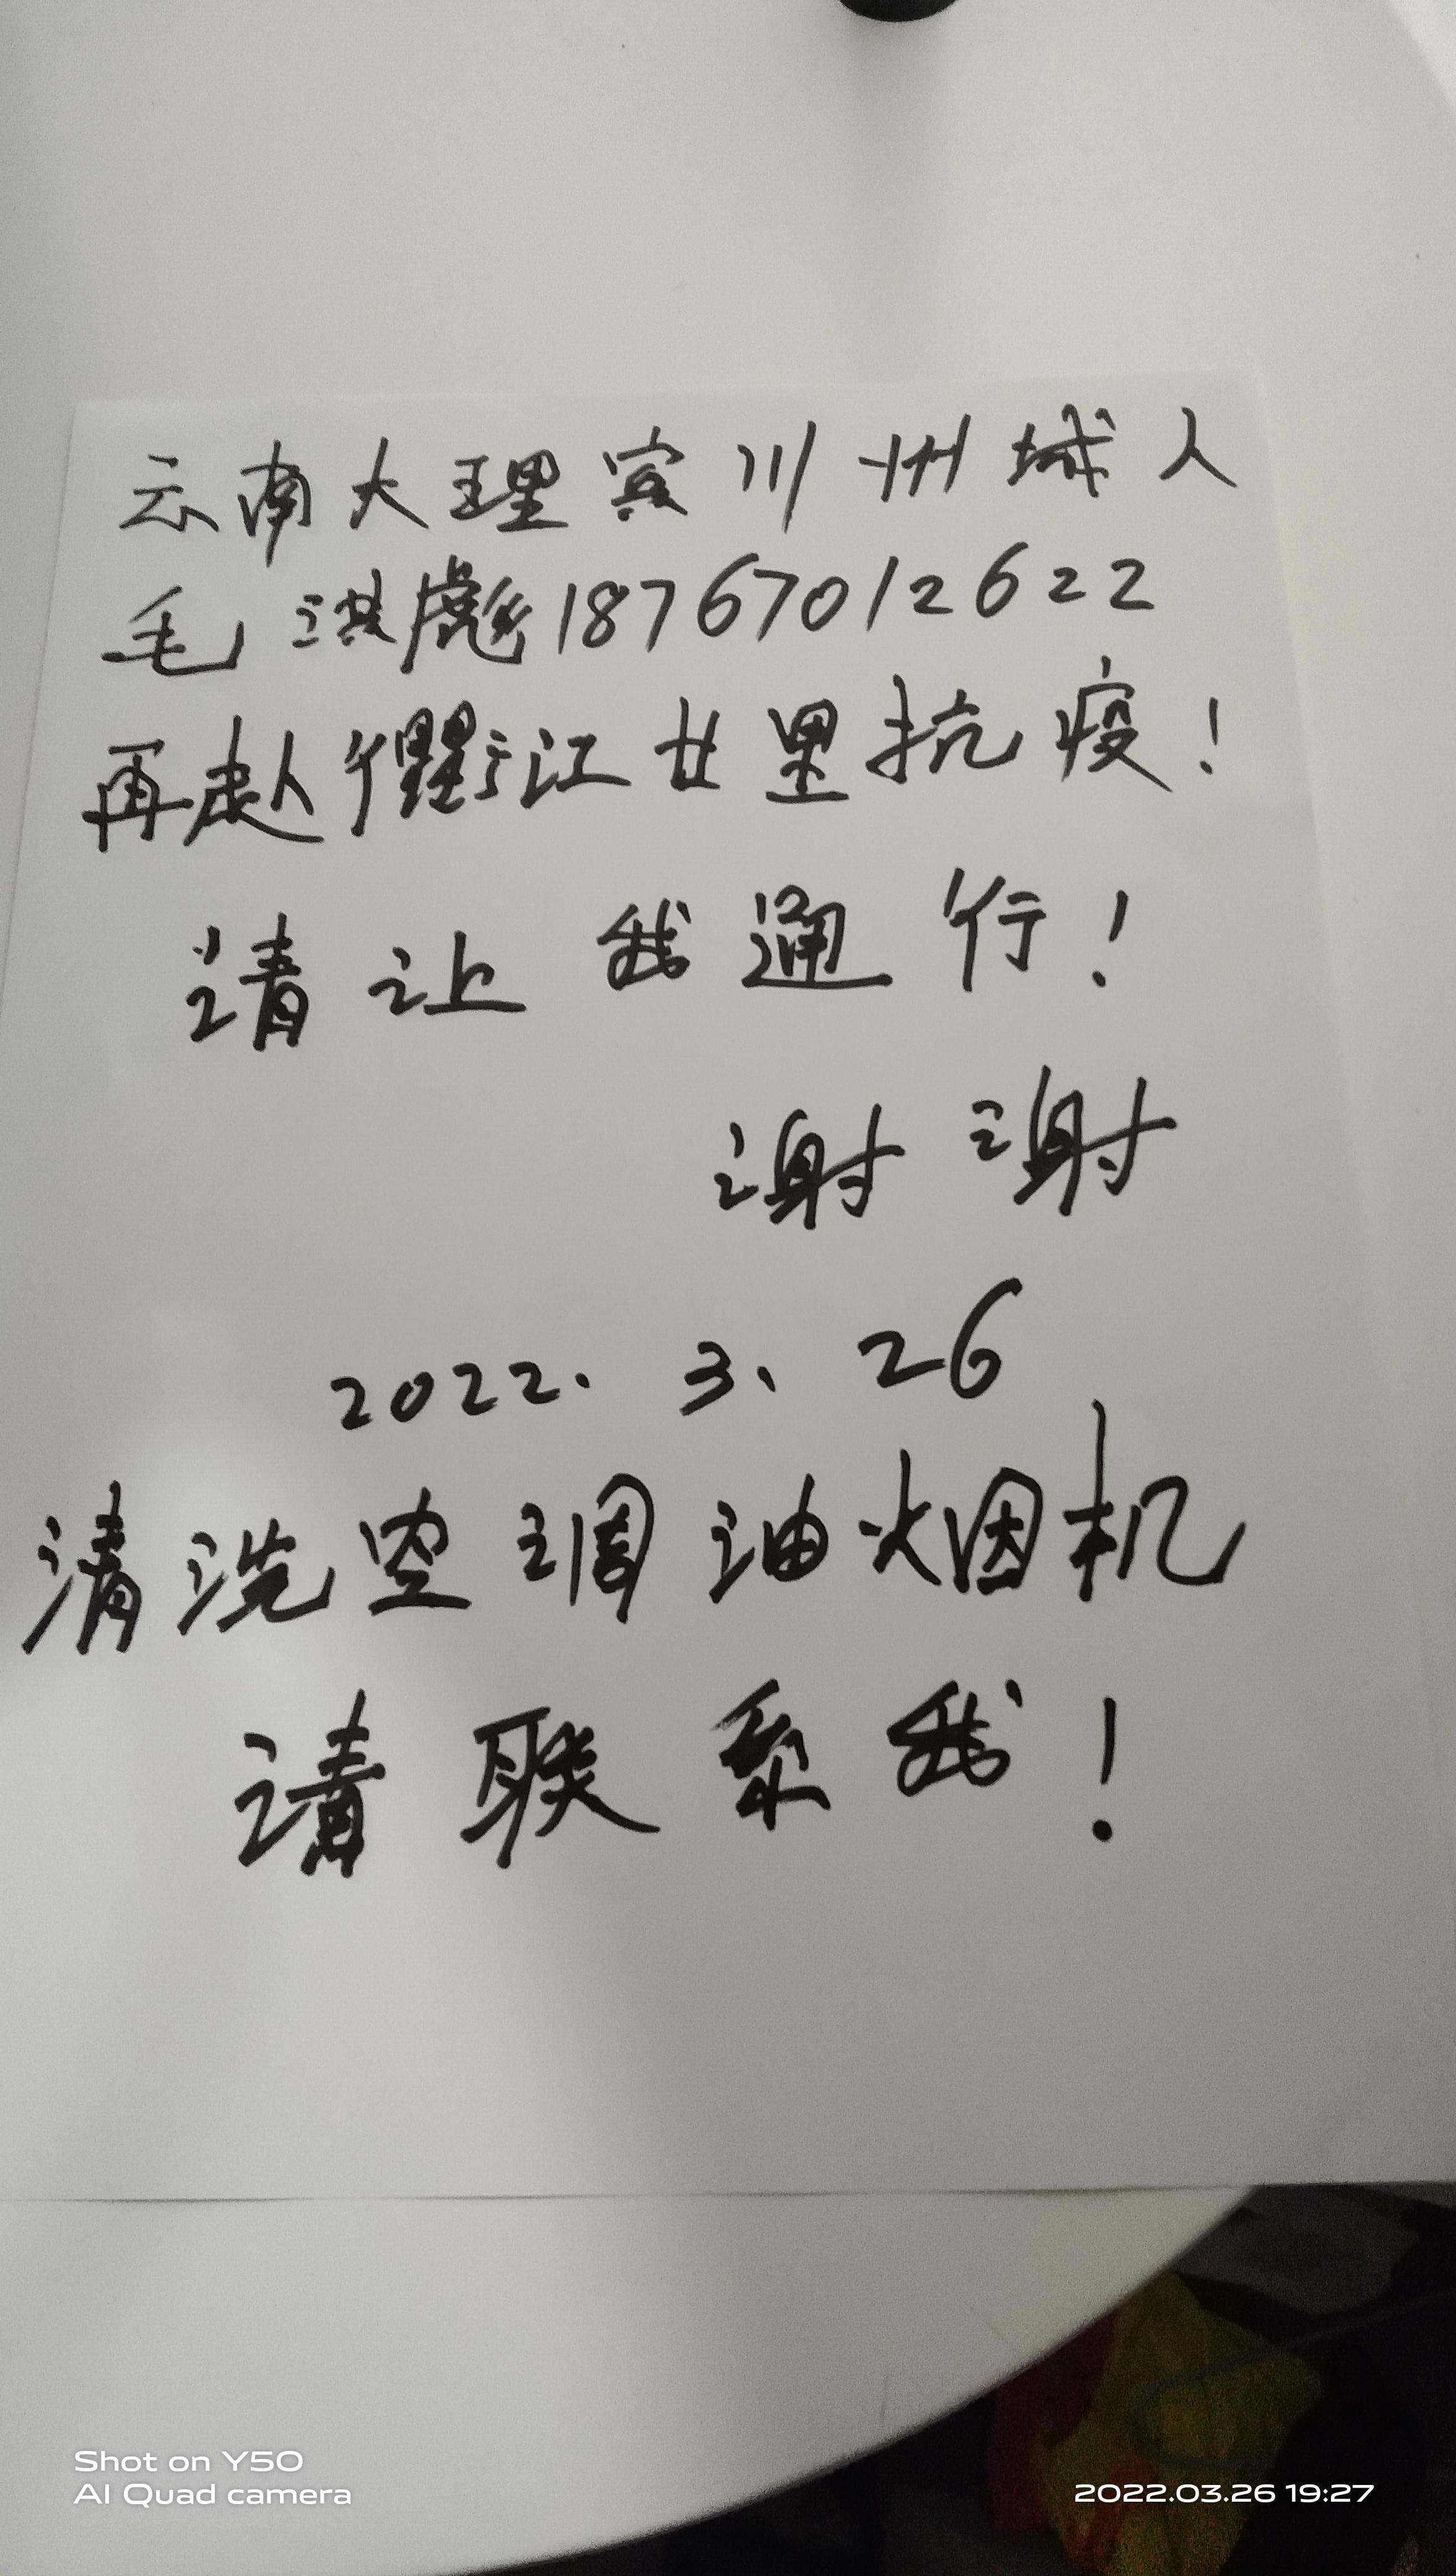 云南大理宾川州城人
毛洪彪18767012622
再赴衢江廿里抗疫!
请让我通行!
谢谢
2022.3、26
清洗空调油烟机
请联系我!
Shot on Y50
AI Quad camera
2022.03.26 19:27